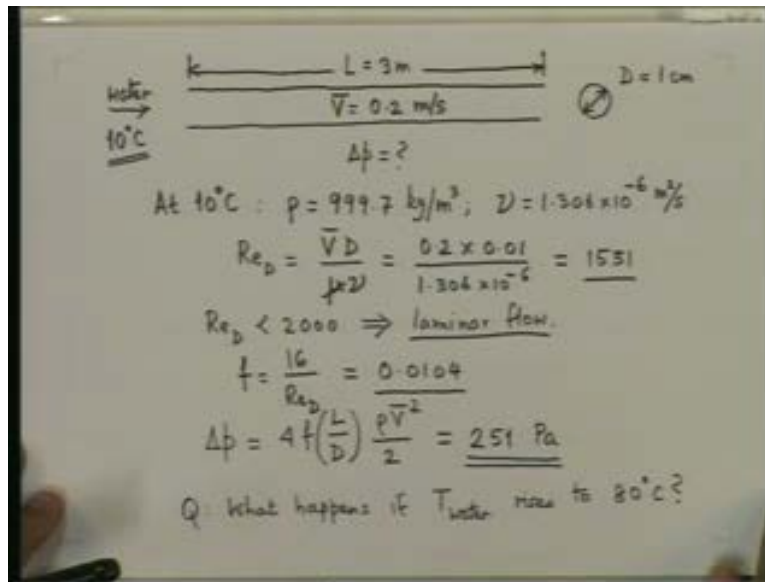 L = 3m
D = 1 cm
water
V̄ = 0.2 m/s
10°C
Δp = ?
At 10°C : ρ = 999.7 kg/m³; ν = 1.306 x 10⁻⁶ m²/s
Re_D = V̄D / ν = 0.2 x 0.01 / 1.306 x 10⁻⁶ = 1531
Re_D < 2000 ⇒ laminar flow.
f = 16 / Re_D = 0.0104
Δp = 4f (L/D) ρV̄² / 2 = 251 Pa
Q: What happens if T_water rises to 80°C?